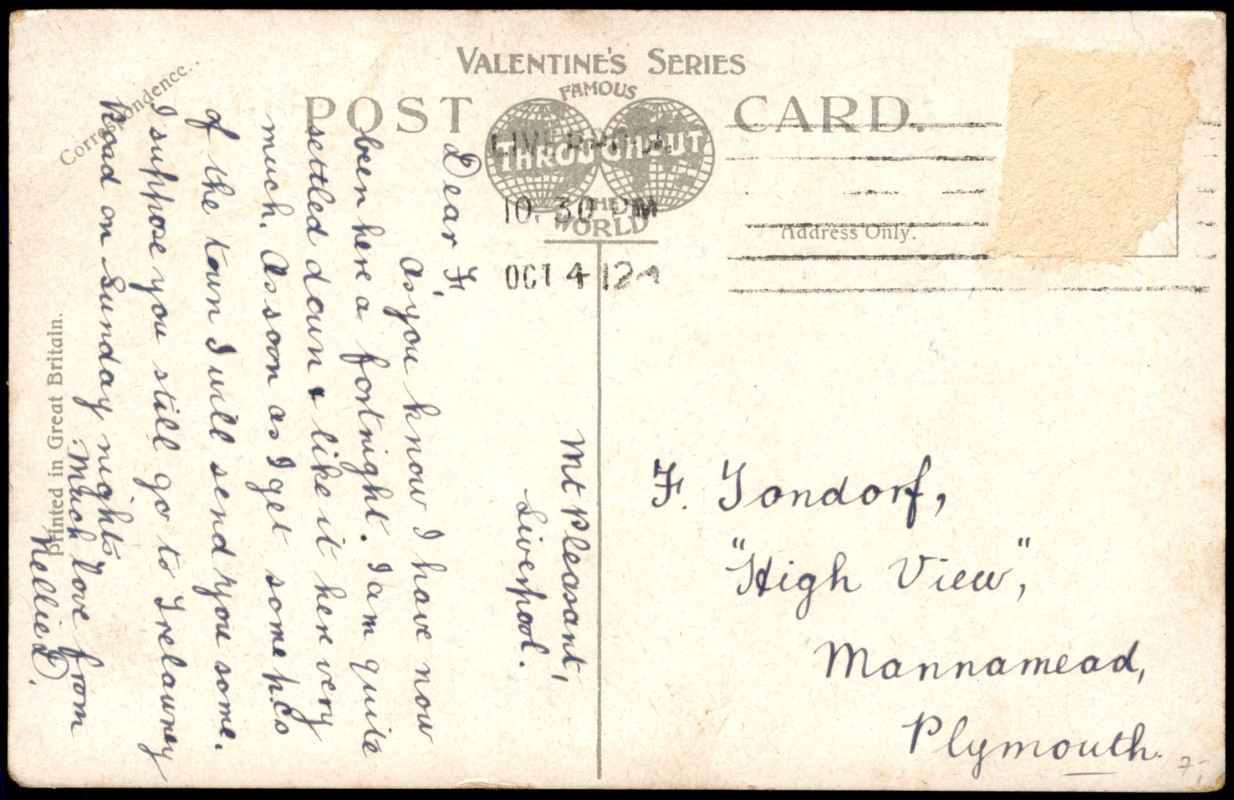 VALENTINE'S SERIES
FAMOUS
POST CARD.
THROUGHOUT
THE
WORLD
LIVERPOOL
10. 30 PM
OCT 4 12
Correspondence.
Address Only.
Printed in Great Britain.
Mt Pleasant,
Liverpool.
Dear F,
As you know I have now
been here a fortnight. I am quite
settled down & like it here very
much. As soon as I get some pcs
of the town I will send you some.
I suppose you still go to Trelawney
Road on Sunday nights
Much love from
Nellie D.
F. Tondorf,
"High View",
Mannamead,
Plymouth.
7-